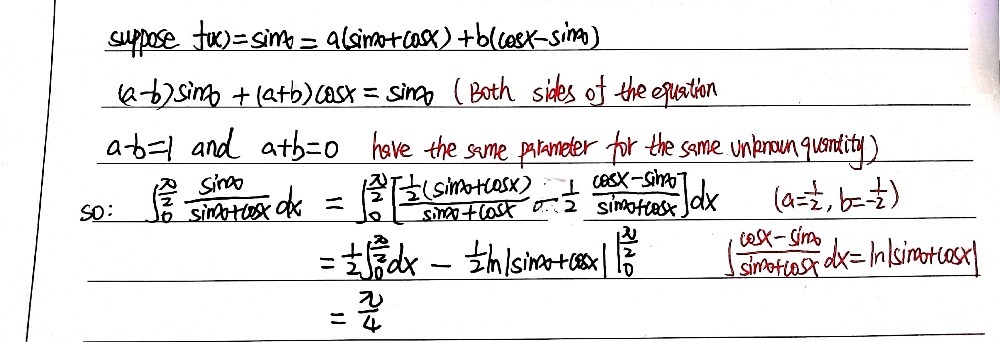 suppose f(x)=sinx = a(sinx+cosx) +b(cosx-sinx)
(a-b)sinx + (a+b)cosx = sinx (Both sides of the equation
a-b=1 and a+b=0 have the same parameter for the same unknown quantity)
so: ∫₀^(π/2) sinx/(sinx+cosx) dx = ∫₀^(π/2) [½(sinx+cosx)/(sinx+cosx) - ½ (cosx-sinx)/(sinx+cosx)]dx (a=½, b=-½)
= ½∫₀^(π/2) dx - ½ln|sinx+cosx| |₀^(π/2) ∫(cosx-sinx)/(sinx+cosx) dx = ln|sinx+cosx|
= π/4